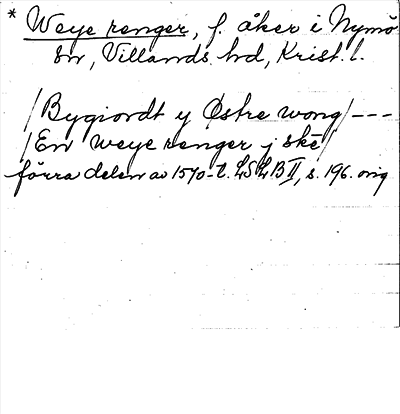 * Weye renger, f. åker i Nymö
sn, Villands hd, Krist. l.
/Bygiordt y Østre wong/---
/En weye renger j skē/
förra delen av 1570-t. LSLB II, s. 196. orig